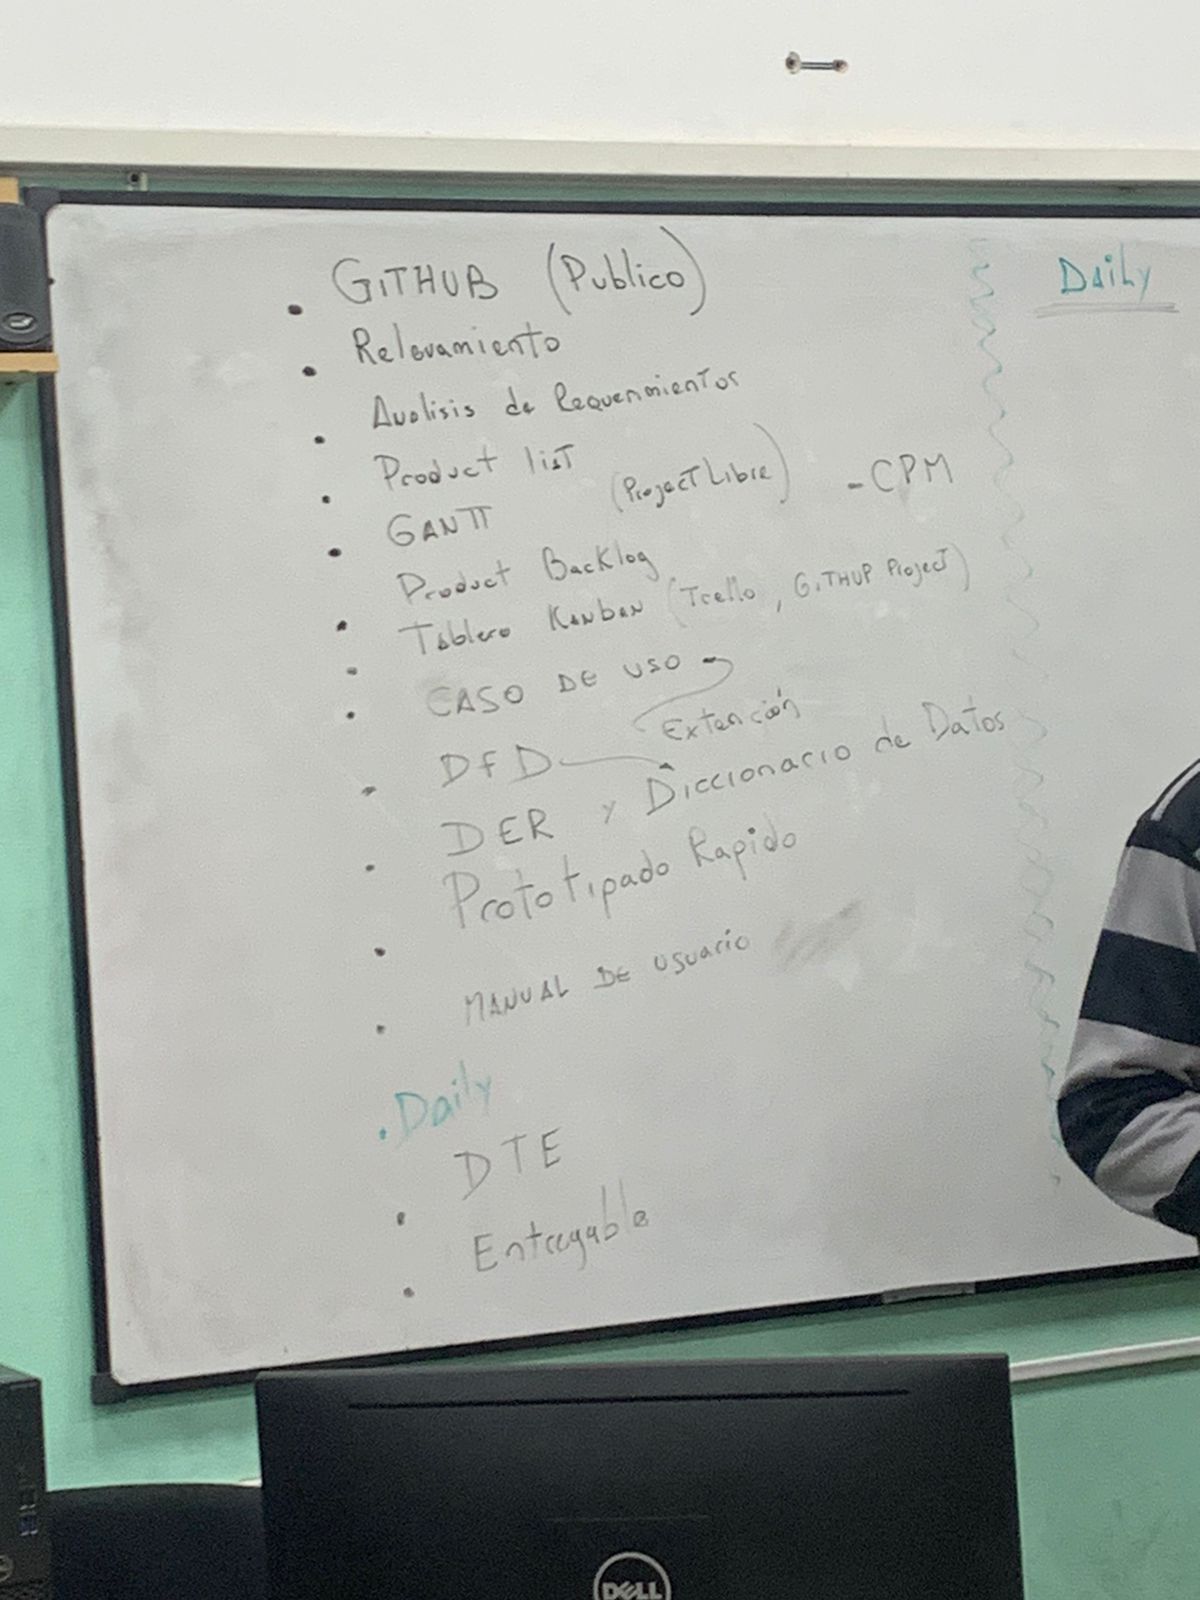 • GITHUB (Publico)
• Relevamiento
• Analisis de Requerimientos
• Product list
• GANTT (ProjectLibre) - CPM
Product Backlog
• Tablero Kanban (Trello, GITHUP Project)
• CASO DE USO
Extención
• DFD
• DER y Diccionario de Datos
• Prototipado Rapido
• MANUAL DE USUARIO
• Daily
• DTE
• Entregable
Daily
DELL